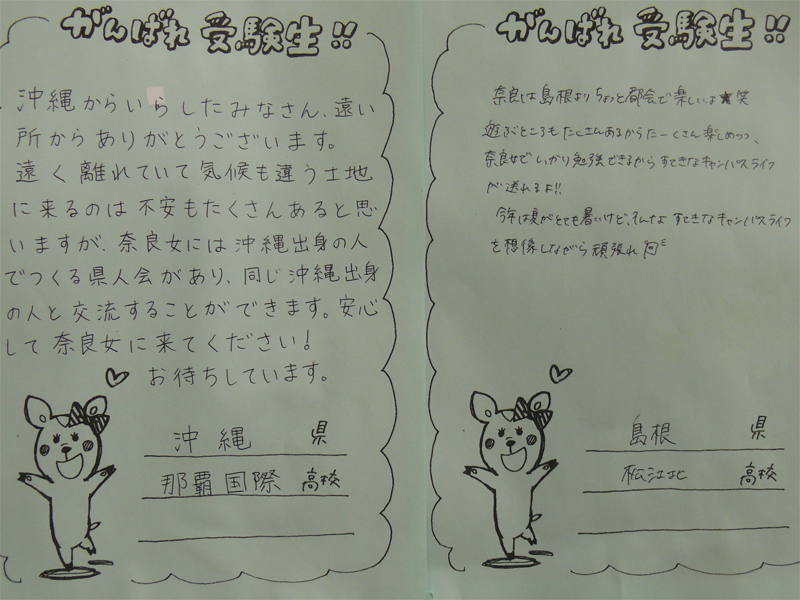 がんばれ 受験生!!
沖縄からいらしたみなさん、遠い
所からありがとうございます。
遠く離れていて気候も違う土地
に来るのは不安もたくさんあると思
いますが、奈良女には沖縄出身の人
でつくる県人会があり、同じ沖縄出身
の人と交流することができます。安心
して奈良女に来てください!
お待ちしています。
沖縄 県
那覇国際 高校
がんばれ 受験生!!
奈良は島根よりちょっと都会で楽しいよ★笑
遊ぶところもたくさんあるからたーくさん楽しめつつ、
奈良女でしっかり勉強できるからすてきなキャンパスライフ
が送れるよ!!
今年は夏がとても暑いけど、そんなすてきなキャンパスライフ
を想像しながら頑張れ
島根 県
松江北 高校